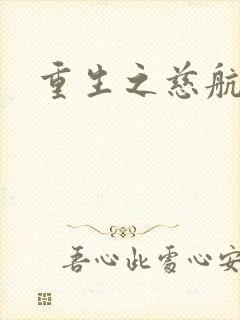 重生之慈航
吾心此处心安